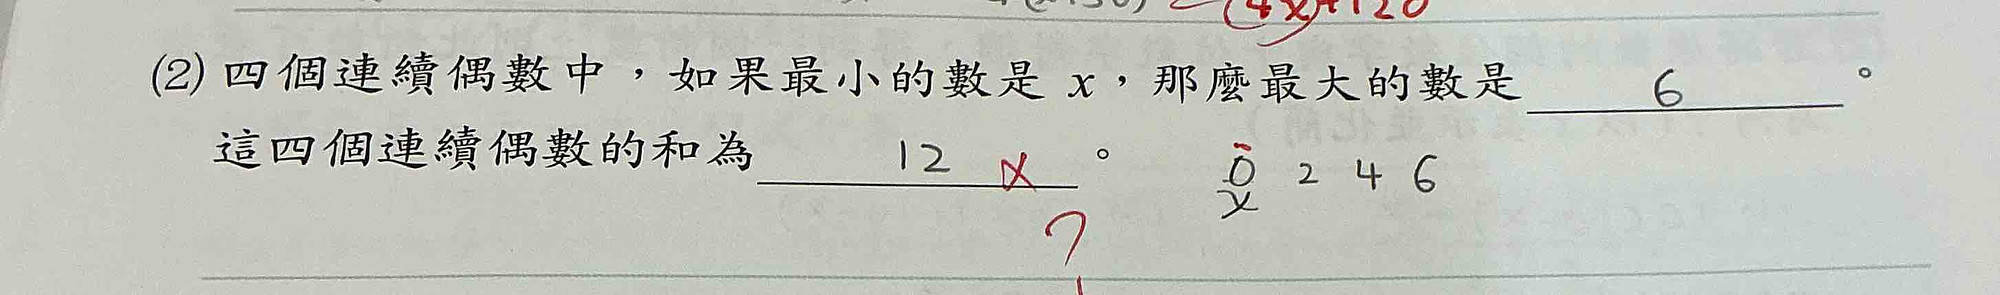 (4x)+120
(2) 四個連續偶數中，如果最小的數是 x，那麼最大的數是 6 。
這四個連續偶數的和為 12 x 。 0 2 4 6
x
?